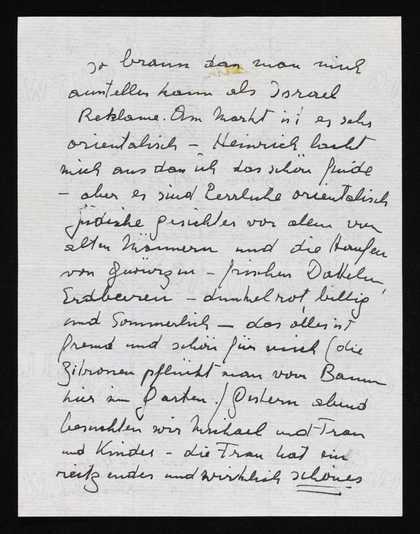 so braun dan man mich
austellen kann als Israel
Reklame. Am Markt ist es sehr
orientalisch – Heinrich lacht
mich aus dan ich das schön finde
– aber es sind herrliche orientalisch
jüdische gesichter vor allem von
alten Männern und die Haufen
von gewürzen – frischen Datteln,
Erdbeeren – dunkelrot billig
und Sommerlich – das alles ist
fremd und schön für mich (die
Zitronen pflückt man vom Baum
hier im Garten.) Gestern abend
besuchten wir Michael und Frau
und Kinder – die Frau hat ein
reitzendes und wirklich schönes